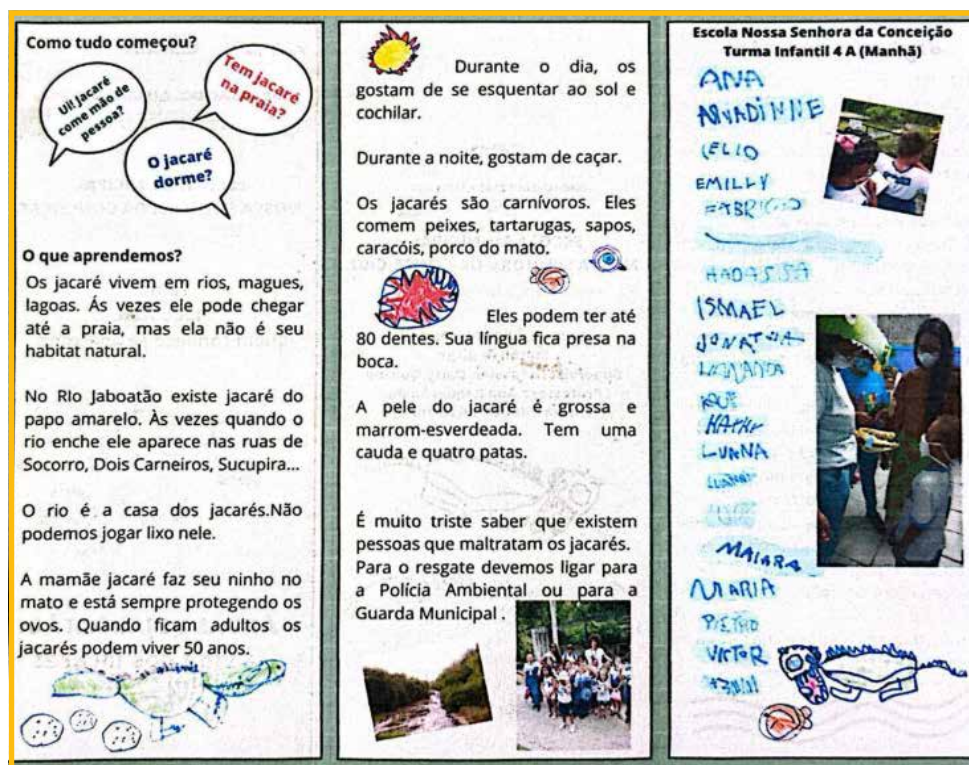 Como tudo começou?
Ui! Jacaré
come mão de
pessoa?
Tem jacaré
na praia?
O jacaré
dorme?
O que aprendemos?
Os jacaré vivem em rios, magues,
lagoas. Ás vezes ele pode chegar
até a praia, mas ela não é seu
habitat natural.
No RIo Jaboatão existe jacaré do
papo amarelo. Às vezes quando o
rio enche ele aparece nas ruas de
Socorro, Dois Carneiros, Sucupira...
O rio é a casa dos jacarés.Não
podemos jogar lixo nele.
A mamãe jacaré faz seu ninho no
mato e está sempre protegendo os
ovos. Quando ficam adultos os
jacarés podem viver 50 anos.
Durante o dia, os
gostam de se esquentar ao sol e
cochilar.
Durante a noite, gostam de caçar.
Os jacarés são carnívoros. Eles
comem peixes, tartarugas, sapos,
caracóis, porco do mato.
Eles podem ter até
80 dentes. Sua língua fica presa na
boca.
A pele do jacaré é grossa e
marrom-esverdeada. Tem uma
cauda e quatro patas.
É muito triste saber que existem
pessoas que maltratam os jacarés.
Para o resgate devemos ligar para
a Polícia Ambiental ou para a
Guarda Municipal .
Escola Nossa Senhora da Conceição
Turma Infantil 4 A (Manhã)
ANA
EMILLY
HADASSA
ISMAEL
LUANA
MAIARA
MARIA
PIETRO
VICTOR